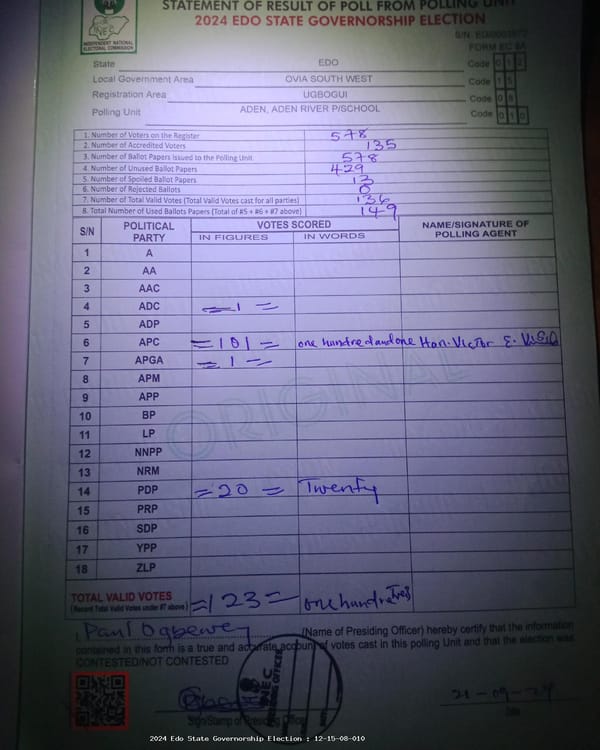 STATEMENT OF RESULT OF POLL FROM POLLING UNIT
2024 EDO STATE GOVERNORSHIP ELECTION
INEC
INDEPENDENT NATIONAL ELECTORAL COMMISSION
FORM EC 8A
State EDO Code 0 1 2
Local Government Area OVIA SOUTH WEST Code 1 5
Registration Area UGBOGUI Code 0 8
Polling Unit ADEN, ADEN RIVER P/SCHOOL Code 0 1 0
1. Number of Voters on the Register 578
2. Number of Accredited Voters 135
3. Number of Ballot Papers Issued to the Polling Unit 578
4. Number of Unused Ballot Papers 429
5. Number of Spoiled Ballot Papers 13
6. Number of Rejected Ballots 0
7. Number of Total Valid Votes (Total Valid Votes cast for all parties) 136
8. Total Number of Used Ballots Papers (Total of #5 + #6 + #7 above) 149
S/N POLITICAL PARTY VOTES SCORED NAME/SIGNATURE OF POLLING AGENT
IN FIGURES IN WORDS
1 A
2 AA
3 AAC
4 ADC = 1 =
5 ADP
6 APC = 101 = one hundred and one Hon. Victor E.
7 APGA = 1 =
8 APM
9 APP
10 BP
11 LP
12 NNPP
13 NRM
14 PDP = 20 = Twenty
15 PRP
16 SDP
17 YPP
18 ZLP
ORIGINAL
TOTAL VALID VOTES
(Record Total Valid Votes under #7 above) = 123 = one hundre
I, Paul Ogbewey (Name of Presiding Officer) hereby certify that the information
contained in this form is a true and accurate account of votes cast in this polling Unit and that the election was
CONTESTED/NOT CONTESTED
INEC
PRESIDING OFFICER
21-09-24
Sign/Stamp of Presiding Officer Date
2024 Edo State Governorship Election : 12-15-08-010